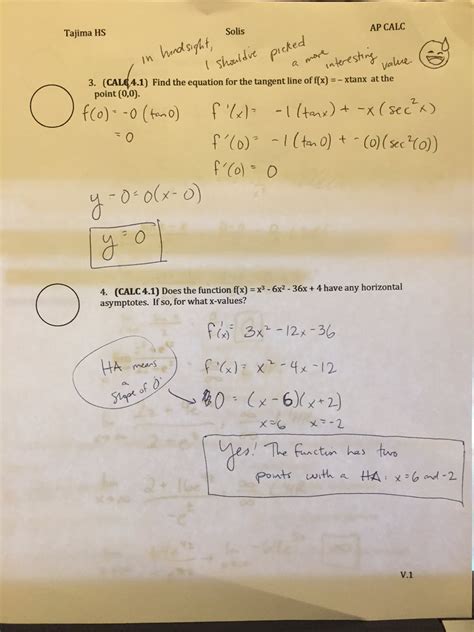 Tajima HS Solis AP CALC
in hindsight, I should've picked a more interesting value.
3. (CALC 4.1) Find the equation for the tangent line of f(x) = – xtanx at the
point (0,0).
f(0) = -0 (tan 0)
= 0
f'(x) = -1(tanx) + -x(sec²x)
f'(0) = -1(tan 0) + -(0)(sec²(0))
f'(0) = 0
y - 0 = 0(x - 0)
y = 0
4. (CALC 4.1) Does the function f(x) = x³ - 6x² - 36x + 4 have any horizontal
asymptotes. If so, for what x-values?
f'(x) = 3x² - 12x - 36
HA means
a
slope of 0
f'(x) = x² - 4x - 12
0 = (x - 6)(x + 2)
x=6 x=-2
Yes! The function has two
points with a HA: x = 6 and -2
V.1